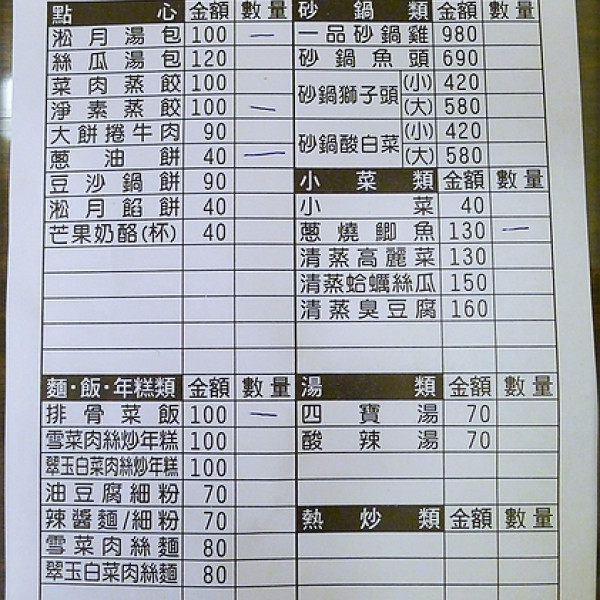 點心 金額 數量
淞月湯包 100 一
絲瓜湯包 120
菜肉蒸餃 100
淨素蒸餃 100 一
大餅捲牛肉 90
蔥油餅 40 一
豆沙鍋餅 90
淞月餡餅 40
芒果奶酪(杯) 40
麵·飯·年糕類 金額 數量
排骨菜飯 100 一
雪菜肉絲炒年糕 100
翠玉白菜肉絲炒年糕 100
油豆腐細粉 70
辣醬麵/細粉 70
雪菜肉絲麵 80
翠玉白菜肉絲麵 80
砂鍋類 金額 數量
一品砂鍋雞 980
砂鍋魚頭 690
砂鍋獅子頭 (小) 420
(大) 580
砂鍋酸白菜 (小) 420
(大) 580
小菜類 金額 數量
小菜 40
蔥燒鯽魚 130 一
清蒸高麗菜 130
清蒸蛤蠣絲瓜 150
清蒸臭豆腐 160
湯類 金額 數量
四寶湯 70
酸辣湯 70
熱炒類 金額 數量